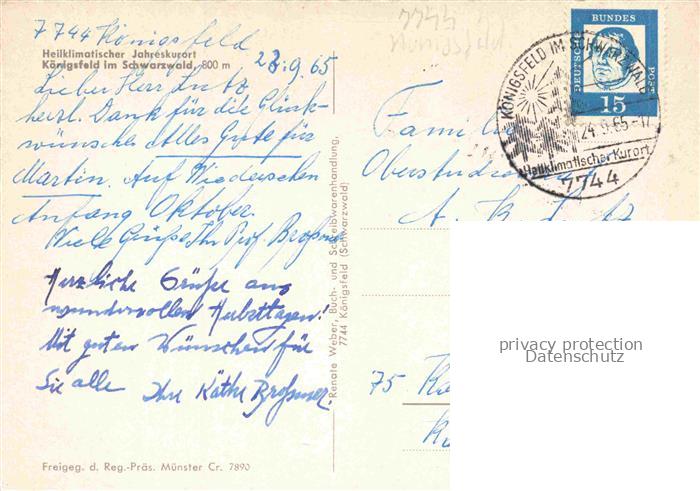 7744 Königsfeld
Heilklimatischer Jahreskurort
Königsfeld im Schwarzwald, 800 m
23.9.65
Lieber Herr Lutz
herzl. Dank für die Glück-
wünsche Alles Gute für
Martin. Auf Wiedersehen
Anfang Oktober.
Viele Grüße Ihr Prof. Broßmer
Herzliche Grüße aus
wundervollen Herbsttagen!
Mit guten Wünschen für
Sie alle Ihre Käthe Broßmer.
Freigeg. d. Reg.-Präs. Münster Cr. 7890
Renate Weber, Buch- und Schreibwarenhandlung,
7744 Königsfeld (Schwarzwald)
7744
Königsfeld
DEUTSCHE BUNDESPOST
15
KÖNIGSFELD IM SCHWARZWALD
24.9.65-17
Heilklimatischer Kurort
7744
Familie
75 Ka
privacy protection
Datenschutz